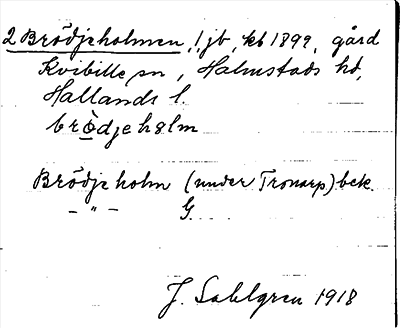 2 Brödjeholmen, ! jb, kb 1899, gård
Kvibille sn, Halmstads hd,
Hallands l.
brödjehɷlm
Brödjeholm (under Tronarp) bek.
— " — G.
J. Sahlgren 1918